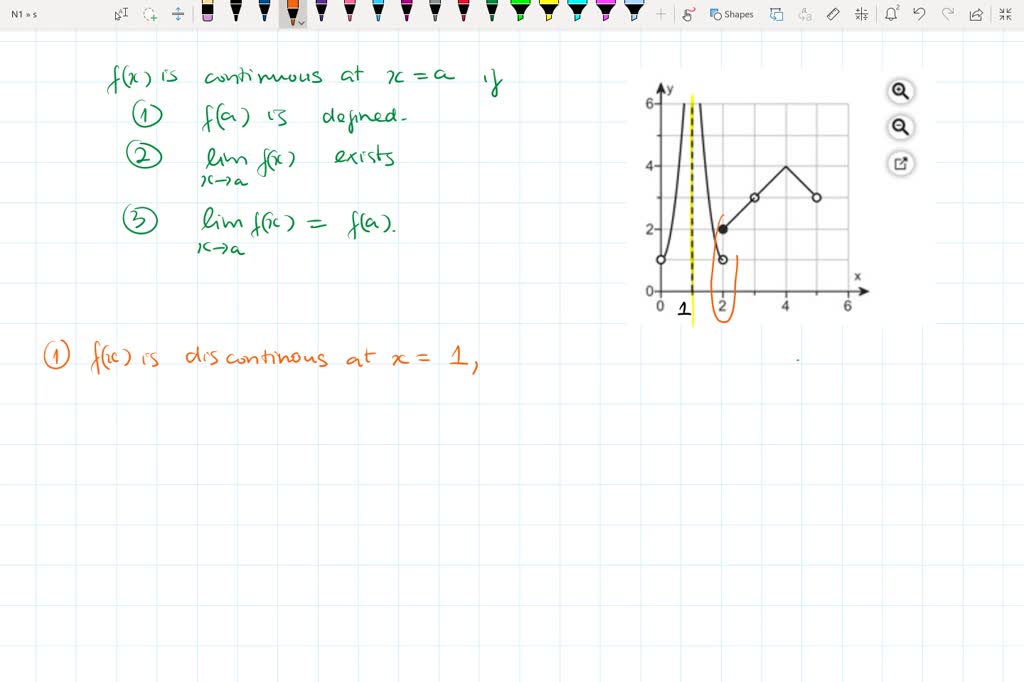 N1 » s
Shapes
2
f(x) is continuous at x = a if
① f(a) is defined.
② lim f(x) exists
x→a
③ lim f(x) = f(a).
x→a
y
6
4
2
0
x
0 1 2 4 6
① f(x) is discontinous at x = 1,